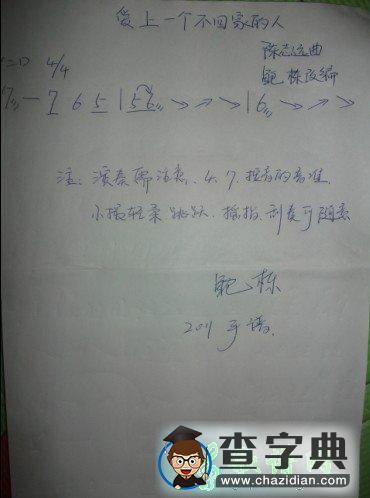 爱上一个不回家的人
1=D 4/4
陈志远曲
鲍栋改编
7 — 7 6 5 | 5 6 | 6
注：演奏需注意、4、7、按音的音准
小揉轻柔跳跃、揺指、刹奏可随意
鲍栋
2011 手谱.
查字典
www.chazidian.com